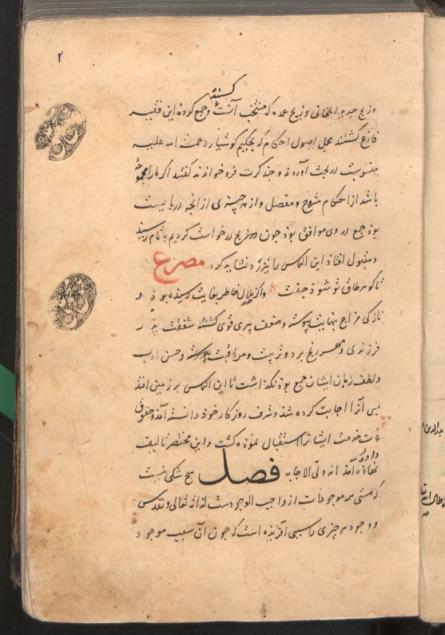 ۲
کشند
و زیج جدید ایلخانی و زیج علاء که منتخب آنست و جمع کرده این فقیه
فارغ گشتند مجمل اصول احکام که بحکیم کوشیار رحمت الله علیه
منسوبست در بحث آوردند و چند کرت فرو خواندند گفتند اگر ما را مجموعه
باشد از احکام مشروح و مفصل و از هر چیزی از آنچه دربایست
بود جمع در وی موافق بود چون در زیج درخواست کردیم باتمام رسید
و مقبول افتاد این التماس را نیز رد نشاید کرد مصرع
تا گوهر طاق تو شود جفت و اگر چه ملال خاطر بغایت رسیده بود و
نازکی مزاج بنهایت پیوسته و ضعف پیری قوی گشته شفقت پدر
فرزندی و رنج برد و تربیت و مراقبت پیوسته و حسن ادب
و لطف زبان ایشان جمع بود نگذاشت تا این التماس بر زمین افتد
پس آنرا اجابت کرده شد و شرف روزگار خود دانسته آمد و حقوق
خدمت ایشان را استقبال نموده گشت و این مختصر تالیف
داده
افتاد انه ولی الاجابه فصل هیچ شکی نیست
که هستی همه موجودات از واجب الوجودست لذاته تعالی و تقدس
و وجود هر چیزی را سببی آفریده است که چون آن سبب موجود